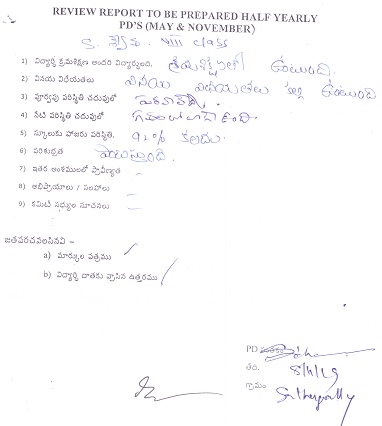 REVIEW REPORT TO BE PREPARED HALF YEARLY
PD'S (MAY & NOVEMBER)
VIII class
1) విద్యార్థి క్రమశిక్షణ అందరి విద్యార్థులంది. క్రమశిక్షణలో ఉంటుంది.
2) వినయ విధేయతలు వినయ విధేయతలు కల్గి ఉంటుంది
3) పూర్వపు పరిస్థితి చదువులో పరవాలేదు.
4) నేటి పరిస్థితి చదువులో
5) స్కూలుకు హాజరు పరిస్థితి. 92% కలదు
6) పరిశుభ్రత పాటిస్తుంది.
7) ఇతర అంశములలో ప్రావీణ్యత –
8) అభిప్రాయాలు / సలహాలు –
9) కమిటీ సభ్యుల సూచనలు –
జతపరచవలసినవి –
a) మార్కుల పత్రము /
b) విద్యార్థి దాతకు వ్రాసిన ఉత్తరము /
PD
తేది.
గ్రామం